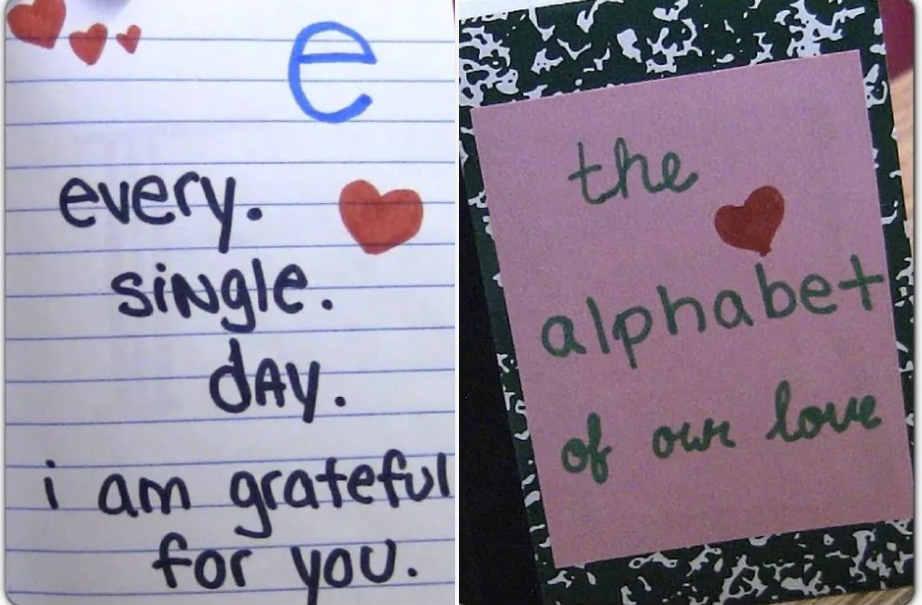 e
every.
siNgle.
dAy.
i am grateful
for you.
the
alphabet
of our love